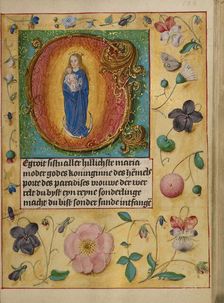 Egroit sistu aller hillichste maria
moder godes konnigunne des hemels
porte des paradises vrouwe der wer
elt du byst eyn reyne sonderlinge
macht du bist sonder sunde intfange